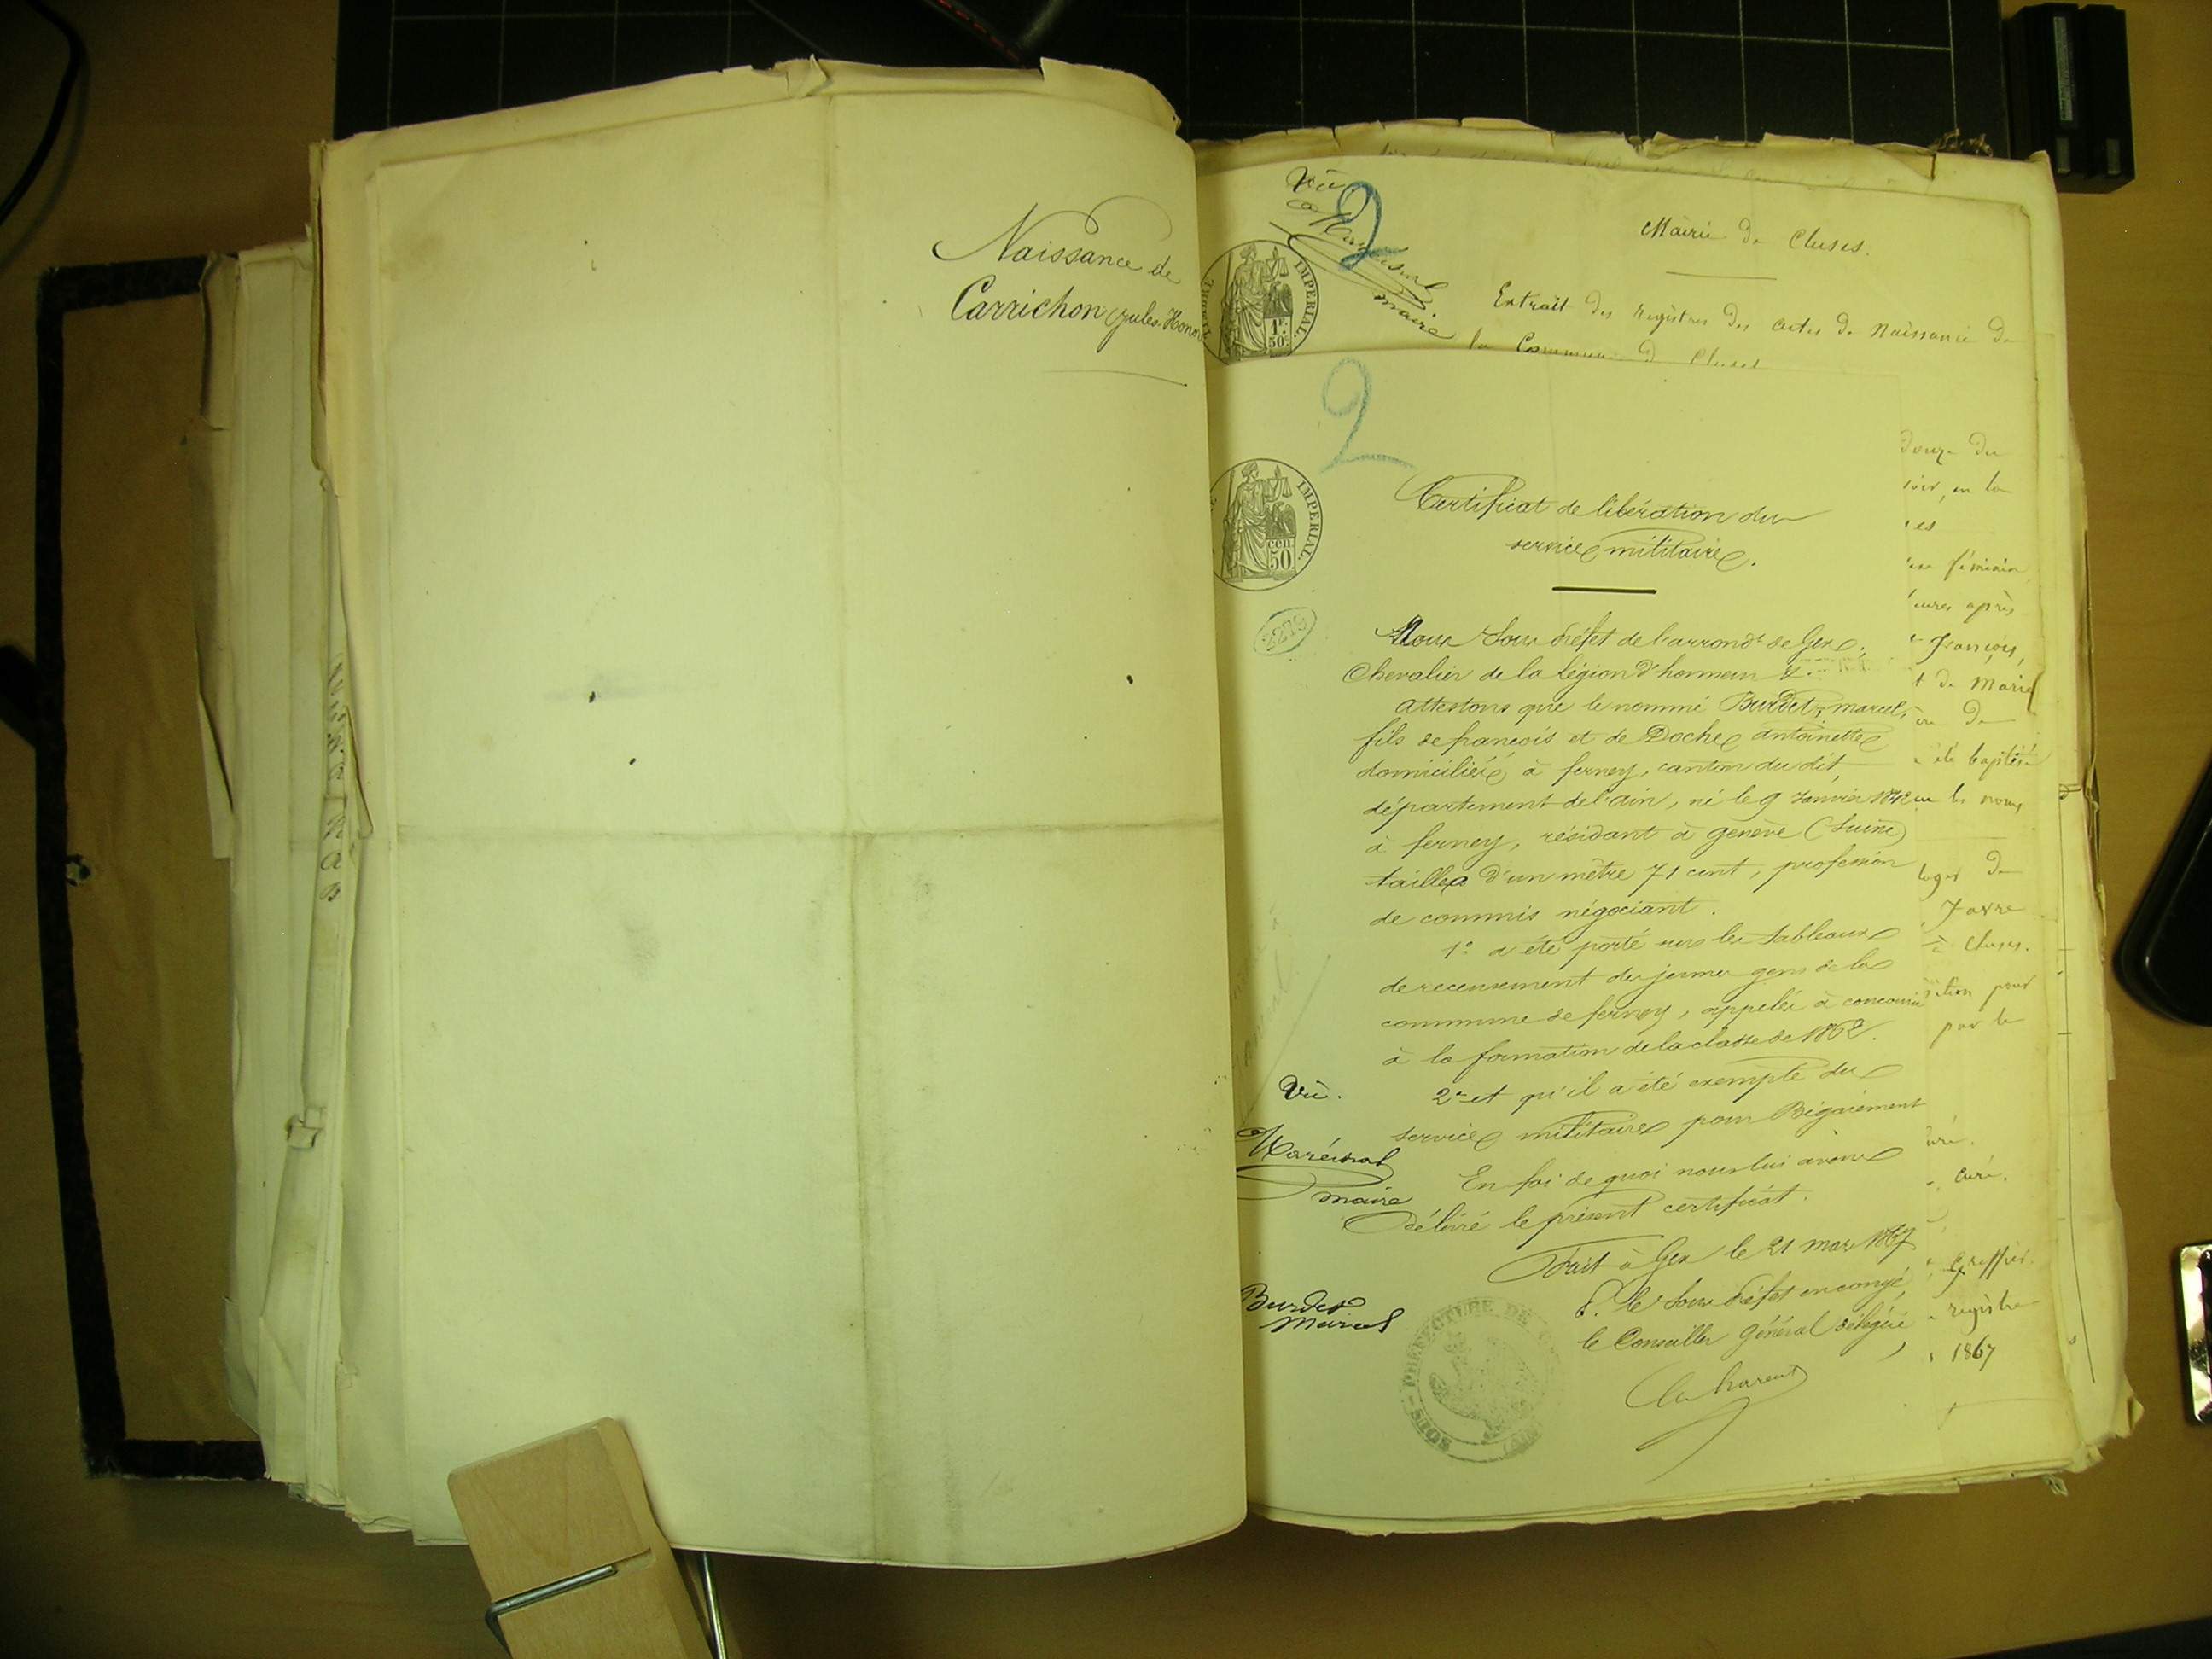 Naissance de
Carrichon Jules Honoré
Vu
2
maire
TIMBRE IMPERIAL.
1F.
50c.
Mairie de Cluses.
Extrait des registres des actes de Naissance de
la Commune de Cluses
2
IMPERIAL.
cen.
50.
2279
Certificat de libération du
service militaire.
Nous Sous Préfet de l'arrondt de Gex,
Chevalier de la légion d'honneur
attestons que le nommé Burdet, marcel,
fils de françois et de Doche antoinette
domicilié à ferney, canton du dit,
département de l'ain, né le 9 Janvier 1842
à ferney, résidant à genève (Suisse)
taille d'un mètre 71 cent, profession
de commis négociant.
1º a été porté sur les tableaux
de recensement des jeunes gens de la
commune de ferney, appelés à concourir
à la formation de la classe de 1862.
2º et qu'il a été exempté du
service militaire pour Bégaiement
En foi de quoi nous lui avons
délivré le présent certificat.
Fait à Gex le 21 mars 1867
P. le Sous Préfet en congé,
le Conseiller général délégué
Vu.
Maréchal
maire
Burdet
Marcel
SOUS-PREFECTURE DE
(AIN)
douze du
soir, en la
es
sexe féminin
heures après
françois,
t de Marie
de
été baptisée
les noms
de
Favre
à Cluses.
pour
par le
curé.
Greffier.
registre
1867